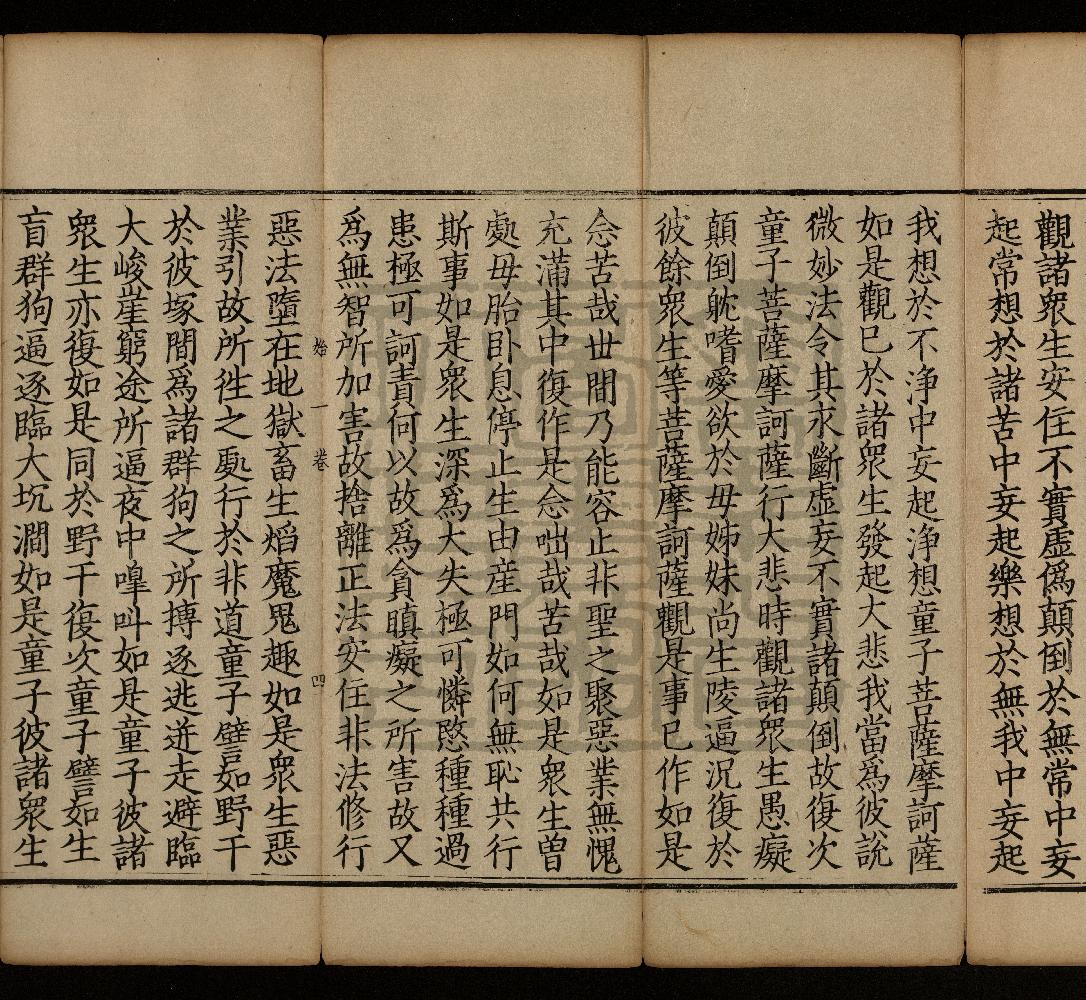 觀諸衆生安住不實虛僞顛倒於無常中妄
起常想於諸苦中妄起樂想於無我中妄起
我想於不淨中妄起淨想童子菩薩摩訶薩
如是觀已於諸衆生發起大悲我當爲彼說
微妙法令其永斷虛妄不實諸顛倒故復次
童子菩薩摩訶薩行大悲時觀諸衆生愚癡
顛倒躭嗜愛欲於母姊妹尚生陵逼況復於
彼餘衆生等菩薩摩訶薩觀是事已作如是
念苦哉世間乃能容止非聖之聚惡業無愧
充滿其中復作是念咄哉苦哉如是衆生曾
處母胎臥息停止生由産門如何無恥共行
斯事如是衆生深爲大失極可憐愍種種過
患極可訶責何以故爲貪瞋癡之所害故又
爲無智所加害故捨離正法安住非法修行
始一卷 四
惡法墮在地獄畜生焰魔鬼趣如是衆生惡
業引故所往之處行於非道童子譬如野干
於彼塚間爲諸群狗之所搏逐逃迸走避臨
大峻崖窮途所逼夜中嘷叫如是童子彼諸
衆生亦復如是同於野干復次童子譬如生
盲群狗逼逐臨大坑澗如是童子彼諸衆生